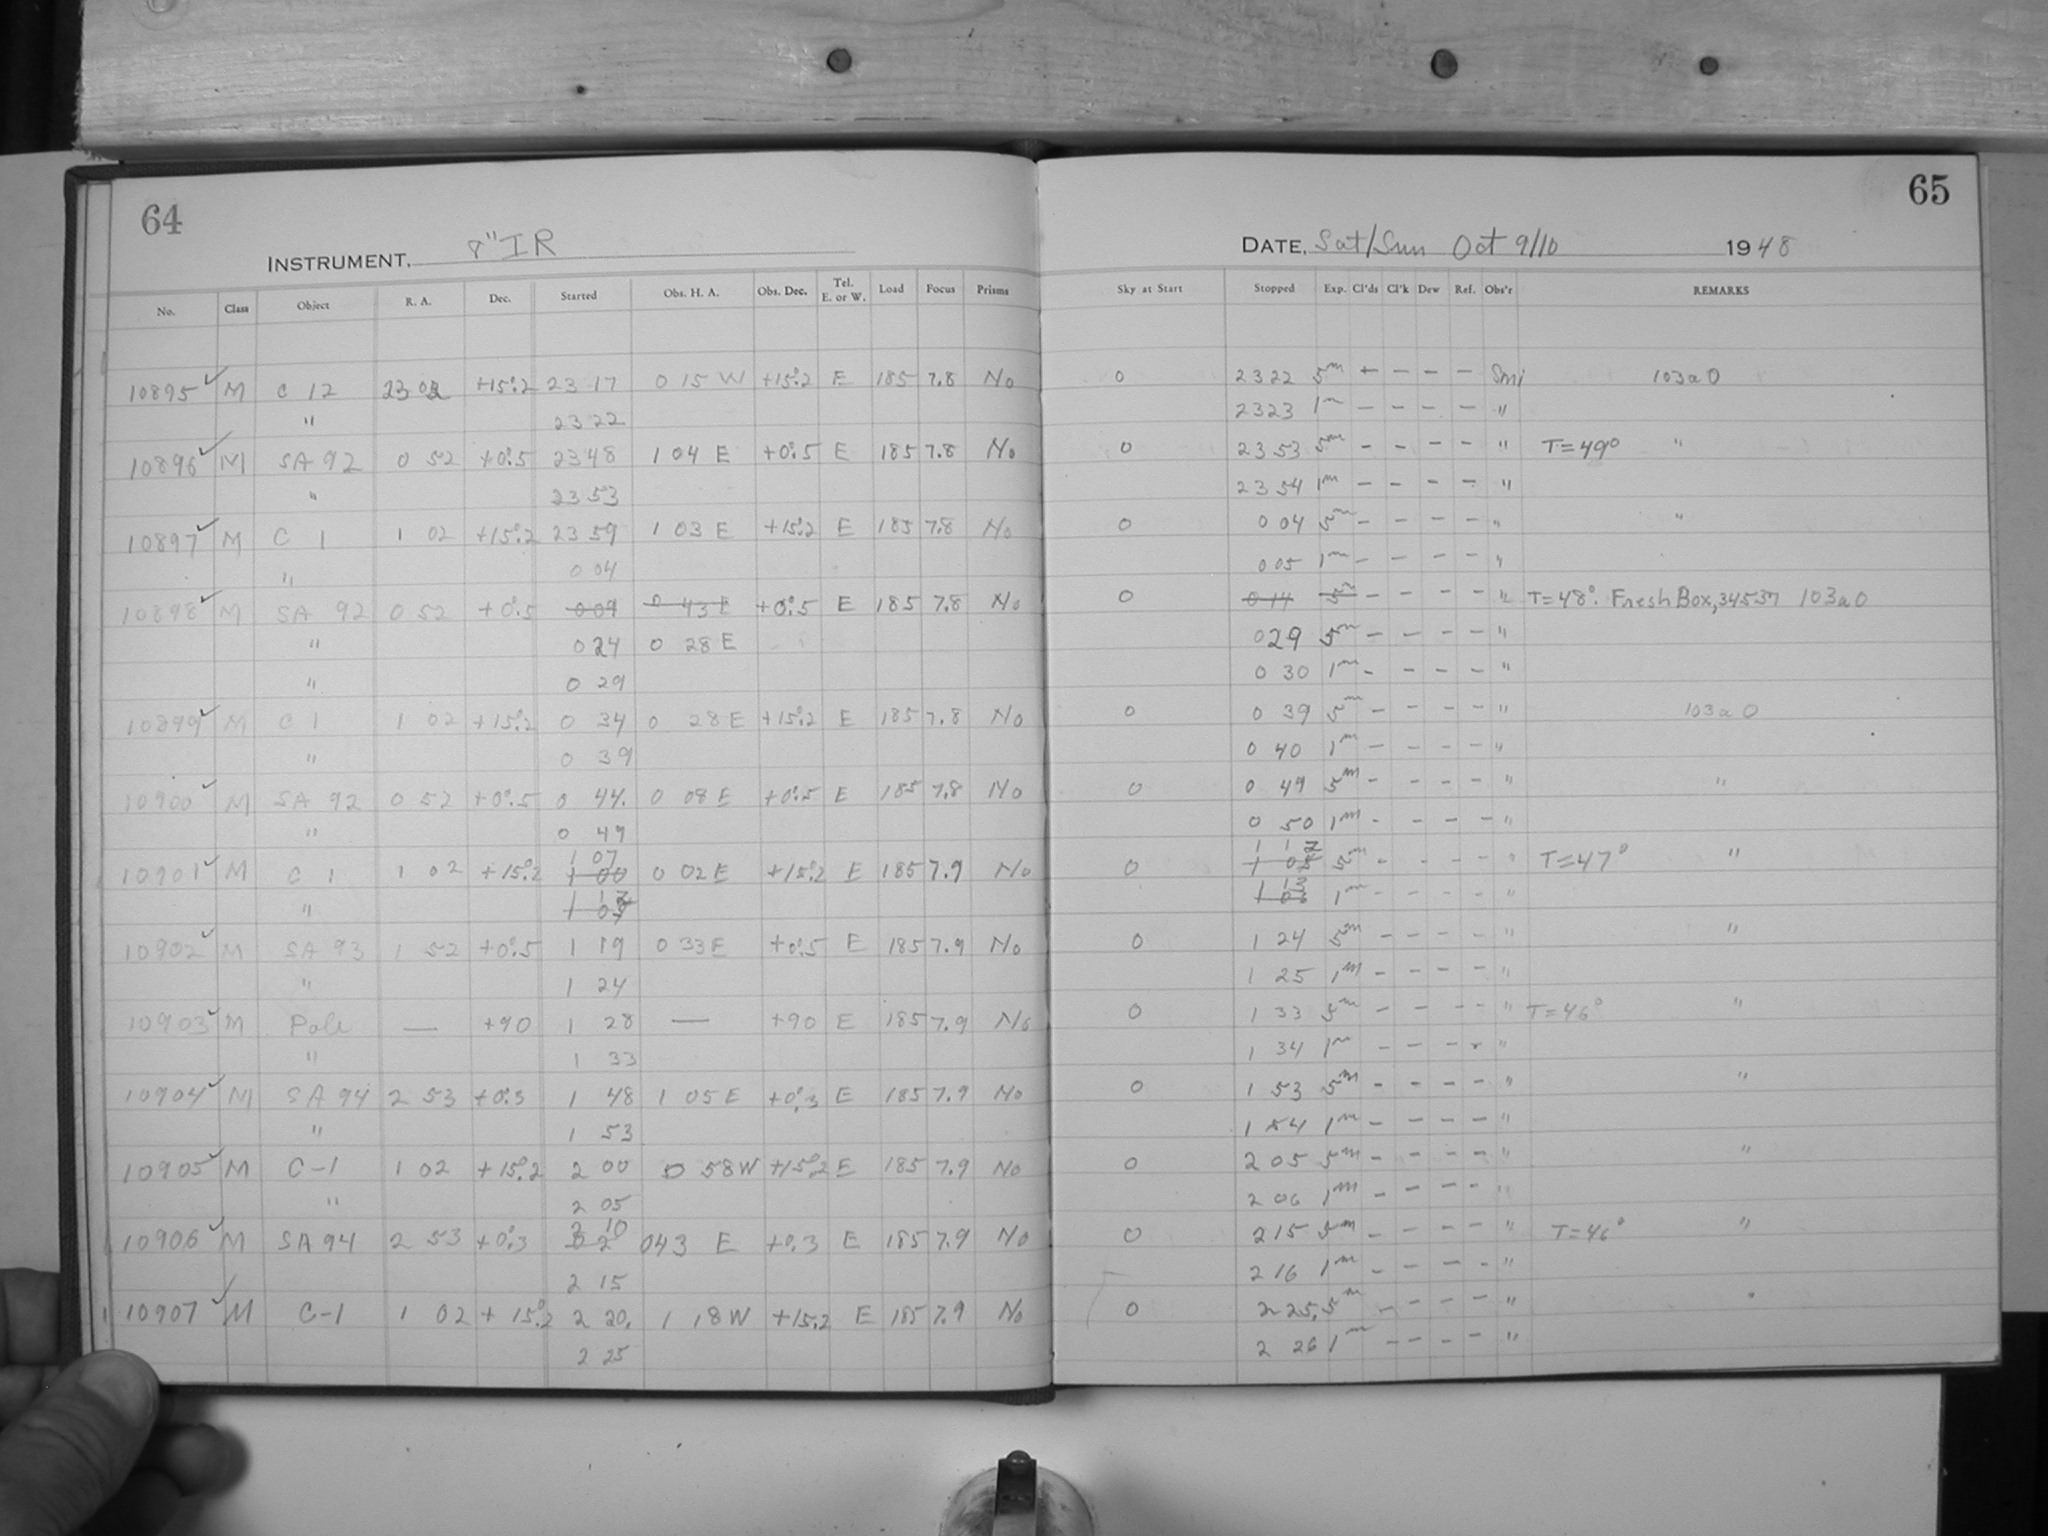 64
INSTRUMENT. 8" IR
No. Class Object R. A. Dec. Started Obs. H. A. Obs. Dec. Tel. E. or W. Load Focus Prisms
65
DATE, Sat/Sun Oct 9/10 1948
Sky at Start Stopped Exp. Cl'ds Cl'k Dew Ref. Obs'r REMARKS
10895 ✓ M C 12 23 02 +15°.2 23 17 0 15 W +15°.2 E 185 7.8 No 0 23 22 5m + - - - Smi 103a0
" 23 22 23 23 1m - - - - "
10896 ✓ M SA 92 0 52 +0°.5 23 48 1 04 E +0°.5 E 185 7.8 No 0 23 53 5m - - - - " T=49° "
" 23 53 23 54 1m - - - - "
10897 ✓ M C 1 1 02 +15°.2 23 59 1 03 E +15°.2 E 185 7.8 No 0 0 04 5m - - - - " "
" 0 04 0 05 1m - - - - "
10898 ✓ M SA 92 0 52 +0°.5 0 09 0 43 E +0°.5 E 185 7.8 No 0 0 14 5m - - - - " T=48°. Fresh Box, 34537 103a0
" 0 24 0 28 E 0 29 5m - - - - "
" 0 29 0 30 1m - - - - "
10899 ✓ M C 1 1 02 +15°.2 0 34 0 28 E +15°.2 E 185 7.8 No 0 0 39 5m - - - - " 103a0
" 0 39 0 40 1m - - - - "
10900 ✓ M SA 92 0 52 +0°.5 0 44. 0 08 E +0°.5 E 185 7.8 No 0 0 49 5m - - - - " "
" 0 49 0 50 1m - - - - "
1 07 1 12
10901 ✓ M C 1 1 02 +15°.2 1 00 0 02 E +15°.2 E 185 7.9 No 0 1 05 5m - - - - " T=47° "
1 12 1 13
" 1 05 1 06 1m - - - - "
10902 ✓ M SA 93 1 52 +0°.5 1 19 0 33 E +0°.5 E 185 7.9 No 0 1 24 5m - - - - " "
" 1 24 1 25 1m - - - - "
10903 ✓ M Pole — +90 1 28 — +90 E 185 7.9 No 0 1 33 5m - - - - " T=46° "
" 1 33 1 34 1m - - - - "
10904 ✓ M SA 94 2 53 +0°.3 1 48 1 05 E +0°.3 E 185 7.9 No 0 1 53 5m - - - - " "
" 1 53 1 54 1m - - - - "
10905 ✓ M C-1 1 02 +15°.2 2 00 0 58 W +15°.2 E 185 7.9 No 0 2 05 5m - - - - " "
" 2 05 2 06 1m - - - - "
10906 ✓ M SA 94 2 53 +0°.3 2 10 043 E +0°.3 E 185 7.9 No 0 2 15 5m - - - - " T=46° "
2 15 2 16 1m - - - - "
10907 ✓ M C-1 1 02 +15°.2 2 20. 1 18 W +15.2 E 185 7.9 No 0 2 25. 5m - - - - " "
2 25 2 26 1m - - - - "